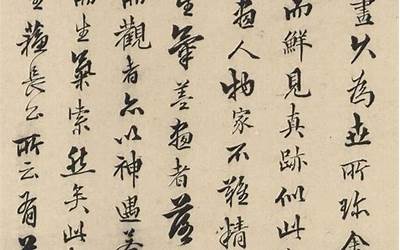 畫久為世所珍
而鮮見真跡似此
人物家不難精
生氣善畫者
而觀者亦以神遇
而生氣索然矣此
蘇長公所云有